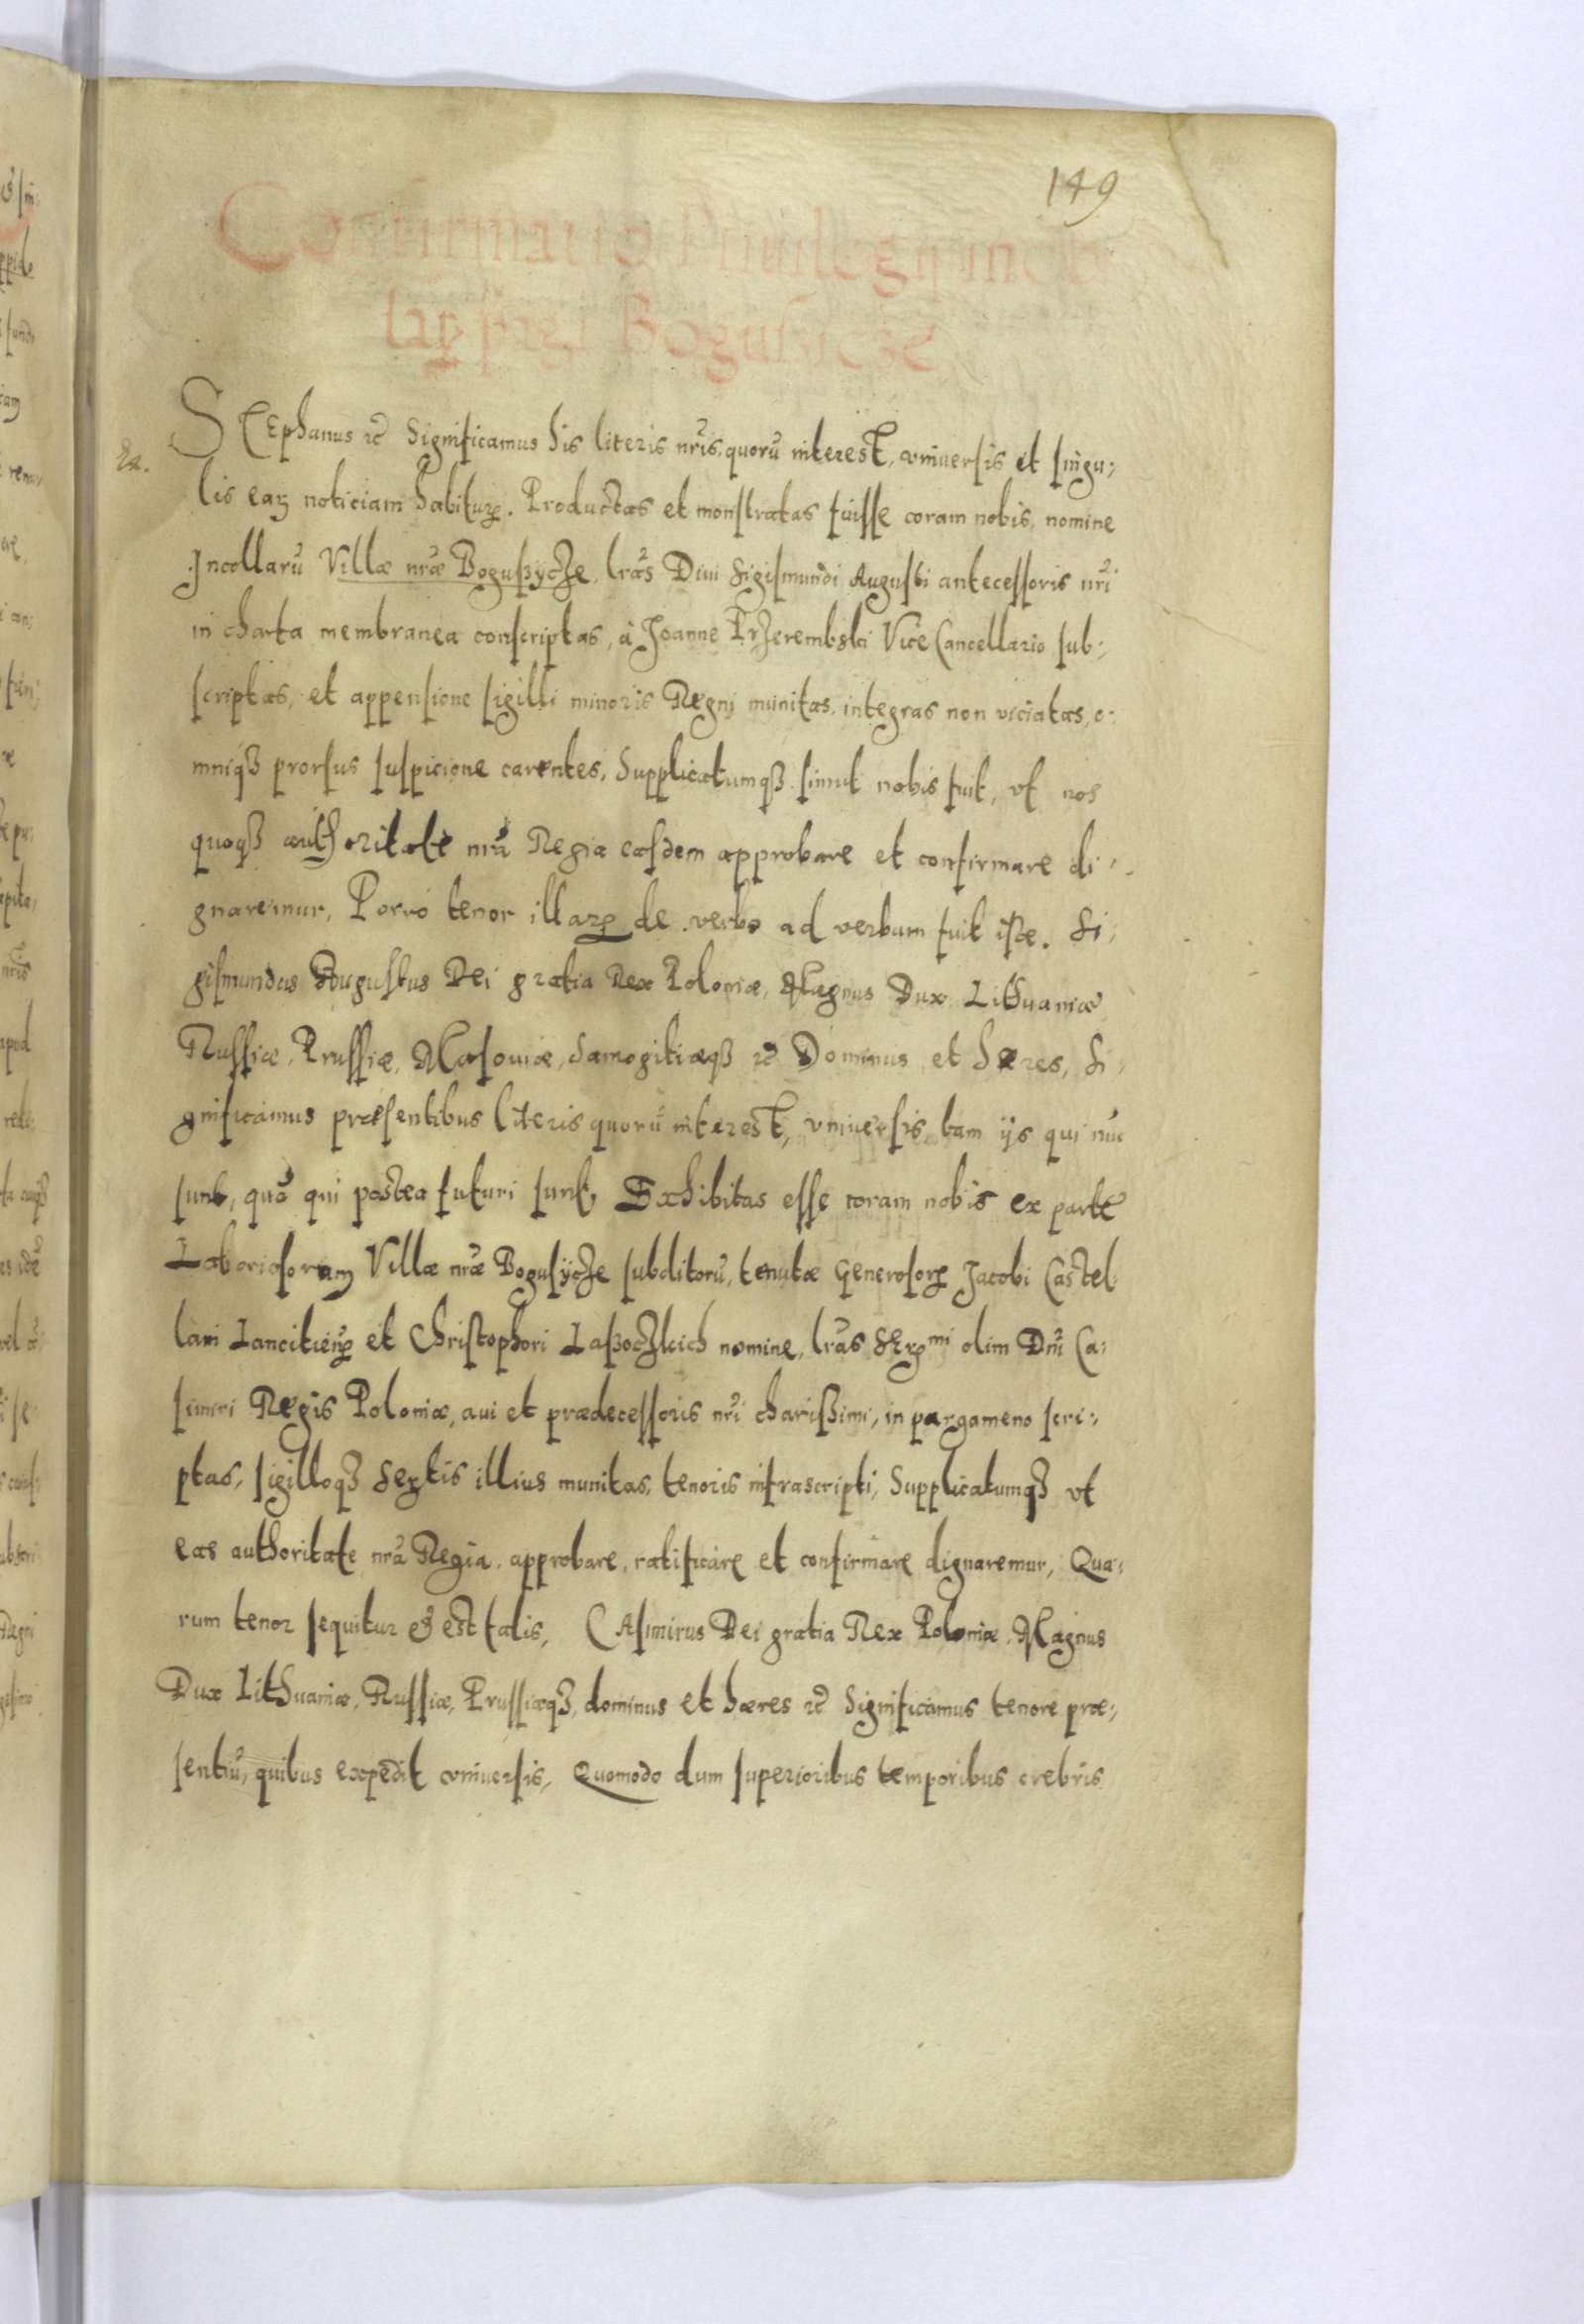 149
Confirmatio Priuilegij incolarꝝ pagi Bogusicze
STEphanus ꝛc̃ Significamus his literis nr̃is, quorũ interest, vniuersis et singu:
Ex.
lis eam noticiam habiturꝫ. Productas et monstratas fuisse coram nobis, nomine
Incollarũ Villæ nr̃æ Bogußycze, lr̃as Diui Sigismundi Augusti antecessoris nr̃i
in charta membranea conscriptas, à Joanne Przerembski Vice Cancellario sub:
scriptas, et appensione sigilli minoris Regnj munitas, integras non viciatas, o:
mniqꝫ prorsus suspicione carentes, Supplicatumqꝫ simul nobis fuit, vt nos
quoqꝫ authoritate nr̃a Regia easdem approbare et confirmare di:
gnaremur, Porrò tenor illarꝝ de verbo ad verbum fuit iste. Si:
gismundus Augustus Dei gratia Rex Poloniæ, Magnus Dux Lithuaniæ
Russiæ, Prussiæ, Masouiæ, Samogitiæqꝫ ꝛc̃ Dominus et hæres, Si:
gnificamus præsentibus literis quorũ interest, vniuersis, tam ijs qui nũc
sunt, quã qui postea futuri sunt, Exhibitas esse coram nobis ex parte
Laboriosorum Villæ nr̃æ Bogusÿcze subditorũ, tenutæ Generosorꝝ Jacobi Castel:
lani Lancitien̄ꝝ et Christophori Laßoczkich nomine, lr̃as Serꝫmi olim Dñi Ca:
simiri Regis Poloniæ, aui et prædecessoris nr̃i charißimi, in pargameno scri:
ptas, sigilloqꝫ Sertis illius munitas, tenoris infrascripti, Supplicatumqꝫ vt
eas authoritate nr̃a Regia, approbare, ratificare et confirmare dignaremur, Qua:
rum tenor sequitur & est talis, CAsimirus Dei gratia Rex Poloniæ, Magnus
Dux Lithuaniæ, Russiæ, Prussiæqꝫ, dominus et hæres ꝛc̃ Significamus tenore præ:
sentiũ, quibus expedit vniuersis, Quomodo dum superioribus temporibus crebris